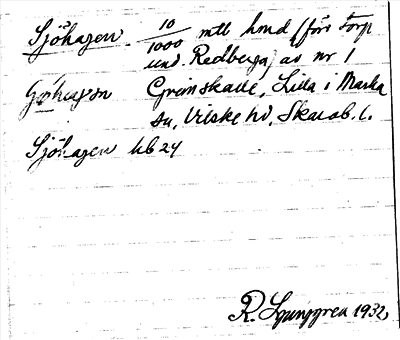 Sjöhagen 10/1000 mtl hmd (förr Torp
und. Redberga) av nr 1
Grimskalle, Lilla i Marka
sn, Vilske hd, Skarab. l.
Sjöhagen kb 24
R. Ljunggren 1932,